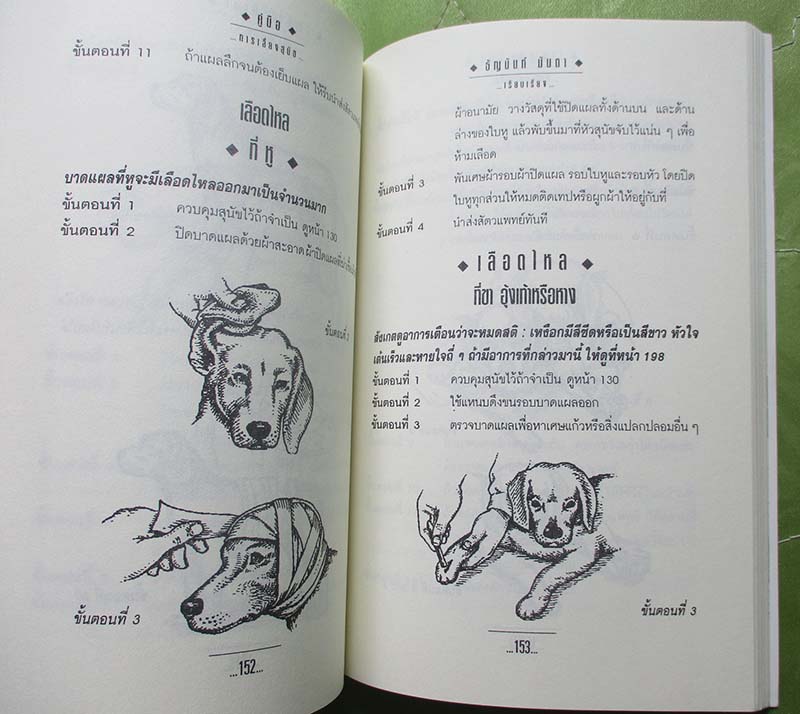 ◆ คู่มือ ◆
...การเลี้ยงสุนัข...
ขั้นตอนที่ 11 ถ้าแผลลึกจนต้องเย็บแผล ให้รีบนำส่งสัตวแพทย์
เลือดไหล
◆ ที่ หู ◆
บาดแผลที่หูจะมีเลือดไหลออกมาเป็นจำนวนมาก
ขั้นตอนที่ 1 ควบคุมสุนัขไว้ถ้าจำเป็น ดูหน้า 130
ขั้นตอนที่ 2 ปิดบาดแผลด้วยผ้าสะอาด ผ้าปิดแผล
ขั้นตอนที่ 2
ขั้นตอนที่ 3
...152...
◆ ธัญนันท์ ◆
...เรียบเรียง...
ผ้าอนามัย วางวัสดุที่ใช้ปิดแผลทั้งด้านบน และด้าน
ล่างของใบหู แล้วพับขึ้นมาที่หัวสุนัขจับไว้แน่น ๆ เพื่อ
ห้ามเลือด
ขั้นตอนที่ 3 พันเศษผ้ารอบผ้าปิดแผล รอบใบหูและรอบหัว โดยปิด
ใบหูทุกส่วนให้หมดติดเทปหรือผูกผ้าให้อยู่กับที่
ขั้นตอนที่ 4 นำส่งสัตวแพทย์ทันที
◆ เลือดไหล ◆
ที่ขา อุ้งเท้าหรือหาง
สังเกตดูอาการเตือนว่าจะหมดสติ : เหงือกมีสีซีดหรือเป็นสีขาว หัวใจ
เต้นเร็วและหายใจถี่ ๆ ถ้ามีอาการที่กล่าวมานี้ ให้ดูที่หน้า 198
ขั้นตอนที่ 1 ควบคุมสุนัขไว้ถ้าจำเป็น ดูหน้า 130
ขั้นตอนที่ 2 ใช้แหนบดึงขนรอบบาดแผลออก
ขั้นตอนที่ 3 ตรวจบาดแผลเพื่อหาเศษแก้วหรือสิ่งแปลกปลอมอื่น ๆ
ขั้นตอนที่ 3
...153...